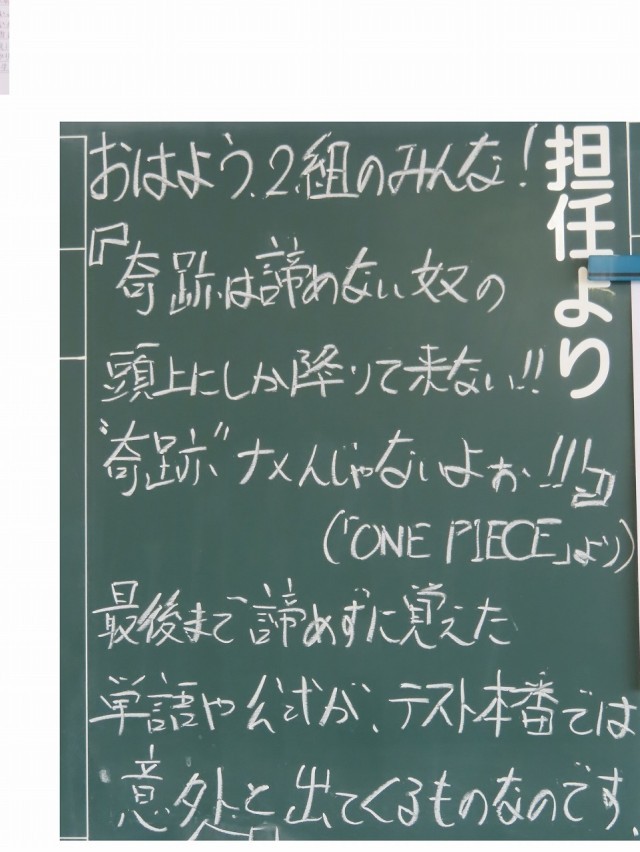 担任より
おはよう、2組のみんな!
『奇跡は諦めない奴の
頭上にしか降りて来ない!!
"奇跡"ナメんじゃないよぉ!!!』
(「ONE PIECE」より)
最後まで諦めずに覚えた
単語や公式が、テスト本番では
意外と出てくるものなのです。